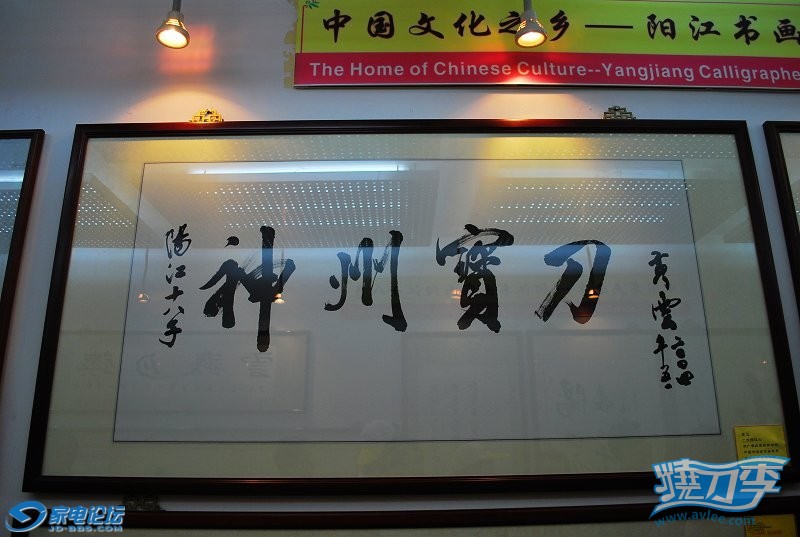 中国文化之乡——阳江书画
The Home of Chinese Culture--Yangjiang Calligraphe
陽江十八子
神州寳刀
家电论坛
JD-BBS.COM
燒刀李
www.avlee.com